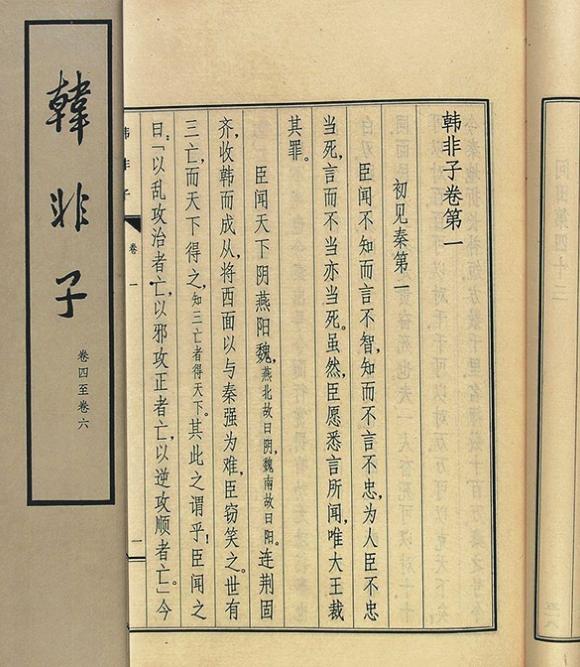 韩非子
卷四至卷六
韩非子卷第一
初见秦第一
臣闻不知而言不智，知而不言不忠，为人臣不忠
当死，言而不当亦当死。虽然，臣愿悉言所闻，唯大王裁
其罪。
臣闻天下阴燕阳魏，燕北故曰阴，魏南故曰阳。连荆固
齐，收韩而成从，将西面以与秦强为难，臣窃笑之。世有
三亡，而天下得之，知三亡者得天下。其此之谓乎！臣闻之
曰：「以乱攻治者亡，以邪攻正者亡，以逆攻顺者亡。」今
韩非子
卷一
一
问田第四十二